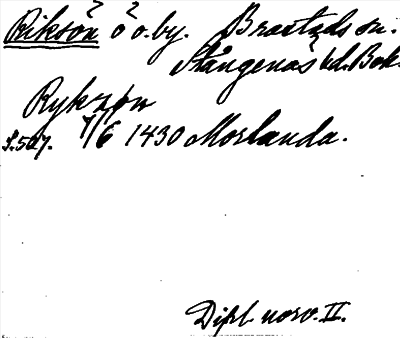 Riksön ö o.by. Brastads sn.
Stångenäs hd. Boh.
Rykzøn
S.527. 7/6 1430 Morlanda.
Dipl. norv. II.